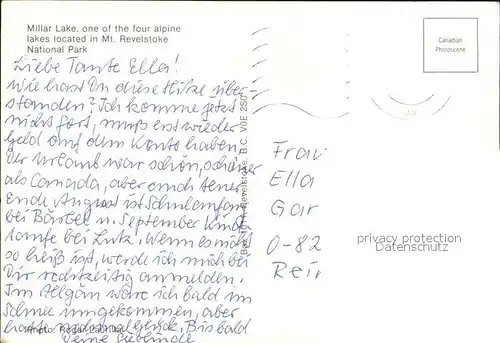 Millar Lake, one of the four alpine
lakes located in Mt. Revelstoke
National Park
Canadian
Photoscene
Liebe Tante Ella!
Wie hast Du diese Hitze über-
standen? Ich komme jetzt
nicht fort, muß erst wieder
Geld auf dem Konto haben.
Der Urlaub war schön, schöner
als Canada, aber auch teuer
Ende August ist Schulanfang
bei Bärbel u. September Kind
taufe bei Lutz. Wenn es nicht
so heiß ist, werde ich mich bei
Dir rechtzeitig anmelden.
Im Allgäu wäre ich bald im
Schnee umgekommen, aber
hatte nochmal Glück. Bis bald
Deine
Photo: Roger
Revelstoke, B.C. V0E 2S0
Frau
Ella
Gar
0-82
Rei
privacy protection
Datenschutz